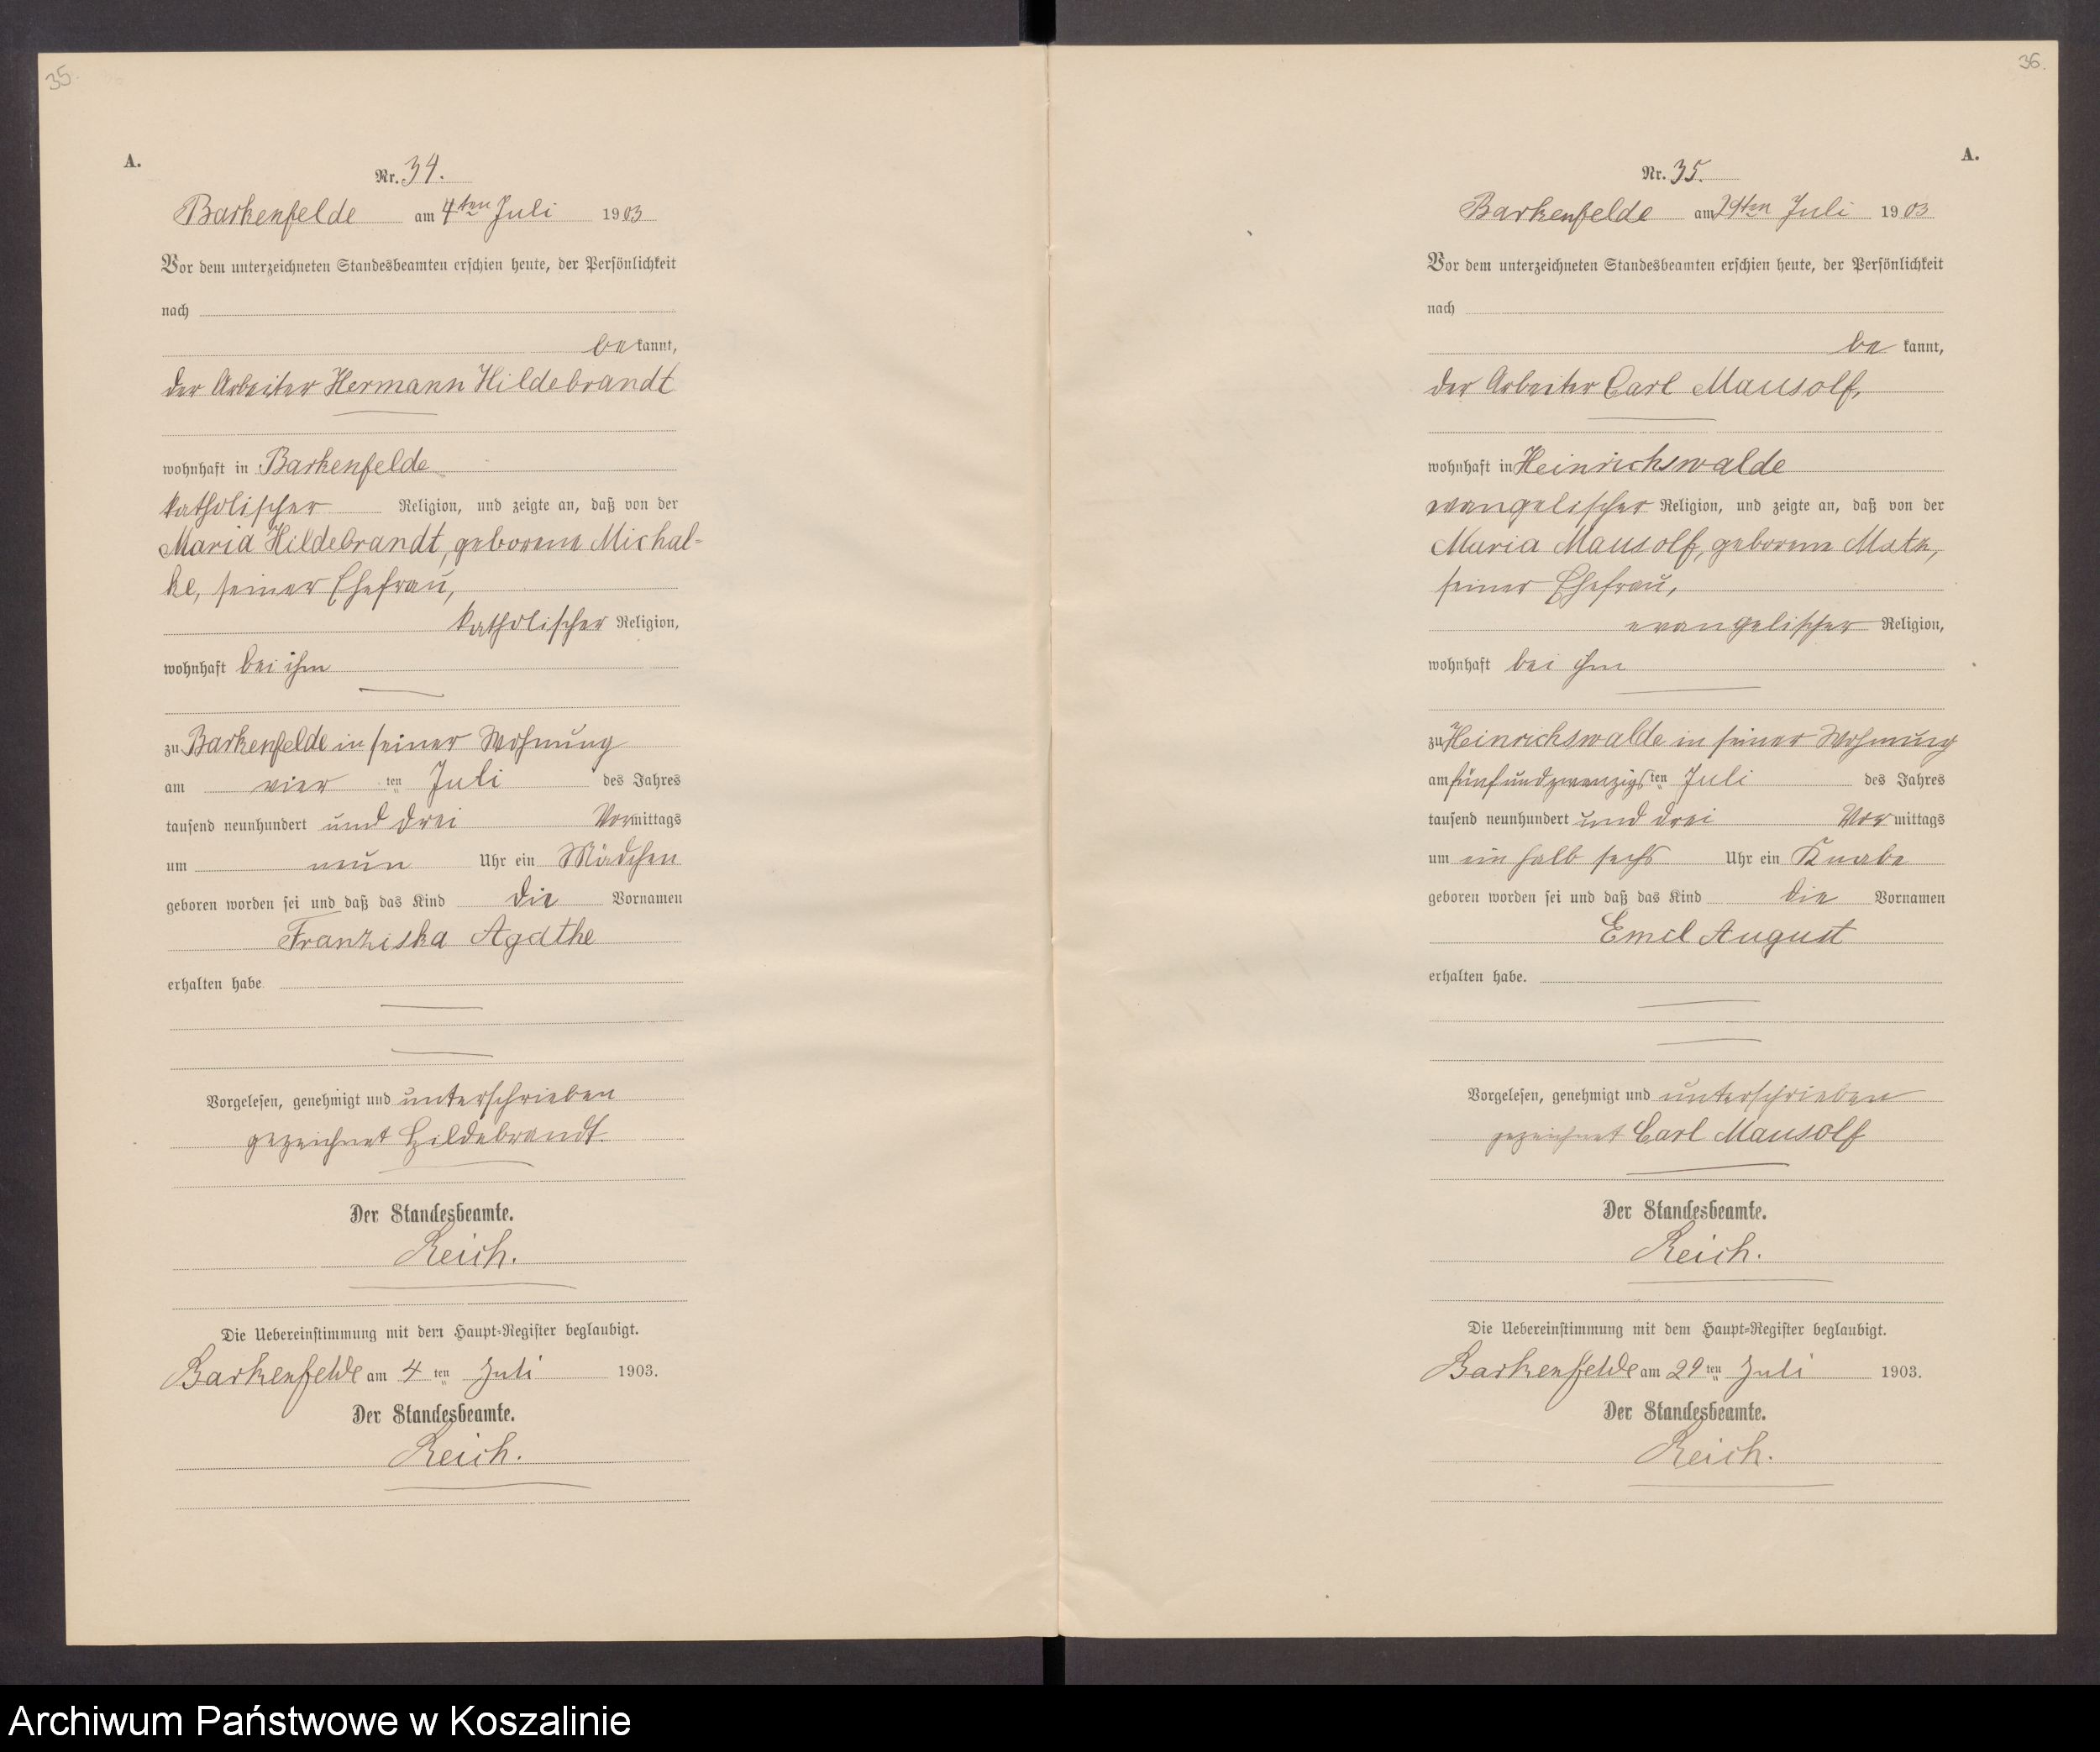 35.
A.
Nr. 34.
Barkenfelde am 4ten Juli 1903
Vor dem unterzeichneten Standesbeamten erschien heute, der Persönlichkeit
nach
be kannt,
der Arbeiter Hermann Hildebrandt
wohnhaft in Barkenfelde
katholischer Religion, und zeigte an, daß von der
Maria Hildebrandt, geborene Michal=
ke, seiner Ehefrau,
katholischer Religion,
wohnhaft bei ihm
zu Barkenfelde in seiner Wohnung
am vier ten Juli des Jahres
tausend neunhundert und drei Vormittags
um neun Uhr ein Mädchen
geboren worden sei und daß das Kind die Vornamen
Franziska Agathe
erhalten habe
Vorgelesen, genehmigt und unterschrieben
gezeichnet Hildebrandt.
Der Standesbeamte.
Reich.
Die Uebereinstimmung mit dem Haupt-Register beglaubigt.
Barkenfelde am 4 ten Juli 1903.
Der Standesbeamte.
Reich.
36.
A.
Nr. 35.
Barkenfelde am 29ten Juli 1903
Vor dem unterzeichneten Standesbeamten erschien heute, der Persönlichkeit
nach
be kannt,
der Arbeiter Carl Mausolf,
wohnhaft in Heinrichswalde
evangelischer Religion, und zeigte an, daß von der
Maria Mausolf, geborene Matz,
seiner Ehefrau,
evangelischer Religion,
wohnhaft bei ihm
zu Heinrichswalde in seiner Wohnung
am fünfundzwanzigsten Juli des Jahres
tausend neunhundert und drei Vormittags
um ein halb sechs Uhr ein Knabe
geboren worden sei und daß das Kind die Vornamen
Emil August
erhalten habe.
Vorgelesen, genehmigt und unterschrieben
gezeichnet Carl Mausolf
Der Standesbeamte.
Reich.
Die Uebereinstimmung mit dem Haupt-Register beglaubigt.
Barkenfelde am 29 ten Juli 1903.
Der Standesbeamte.
Reich.
Archiwum Państwowe w Koszalinie